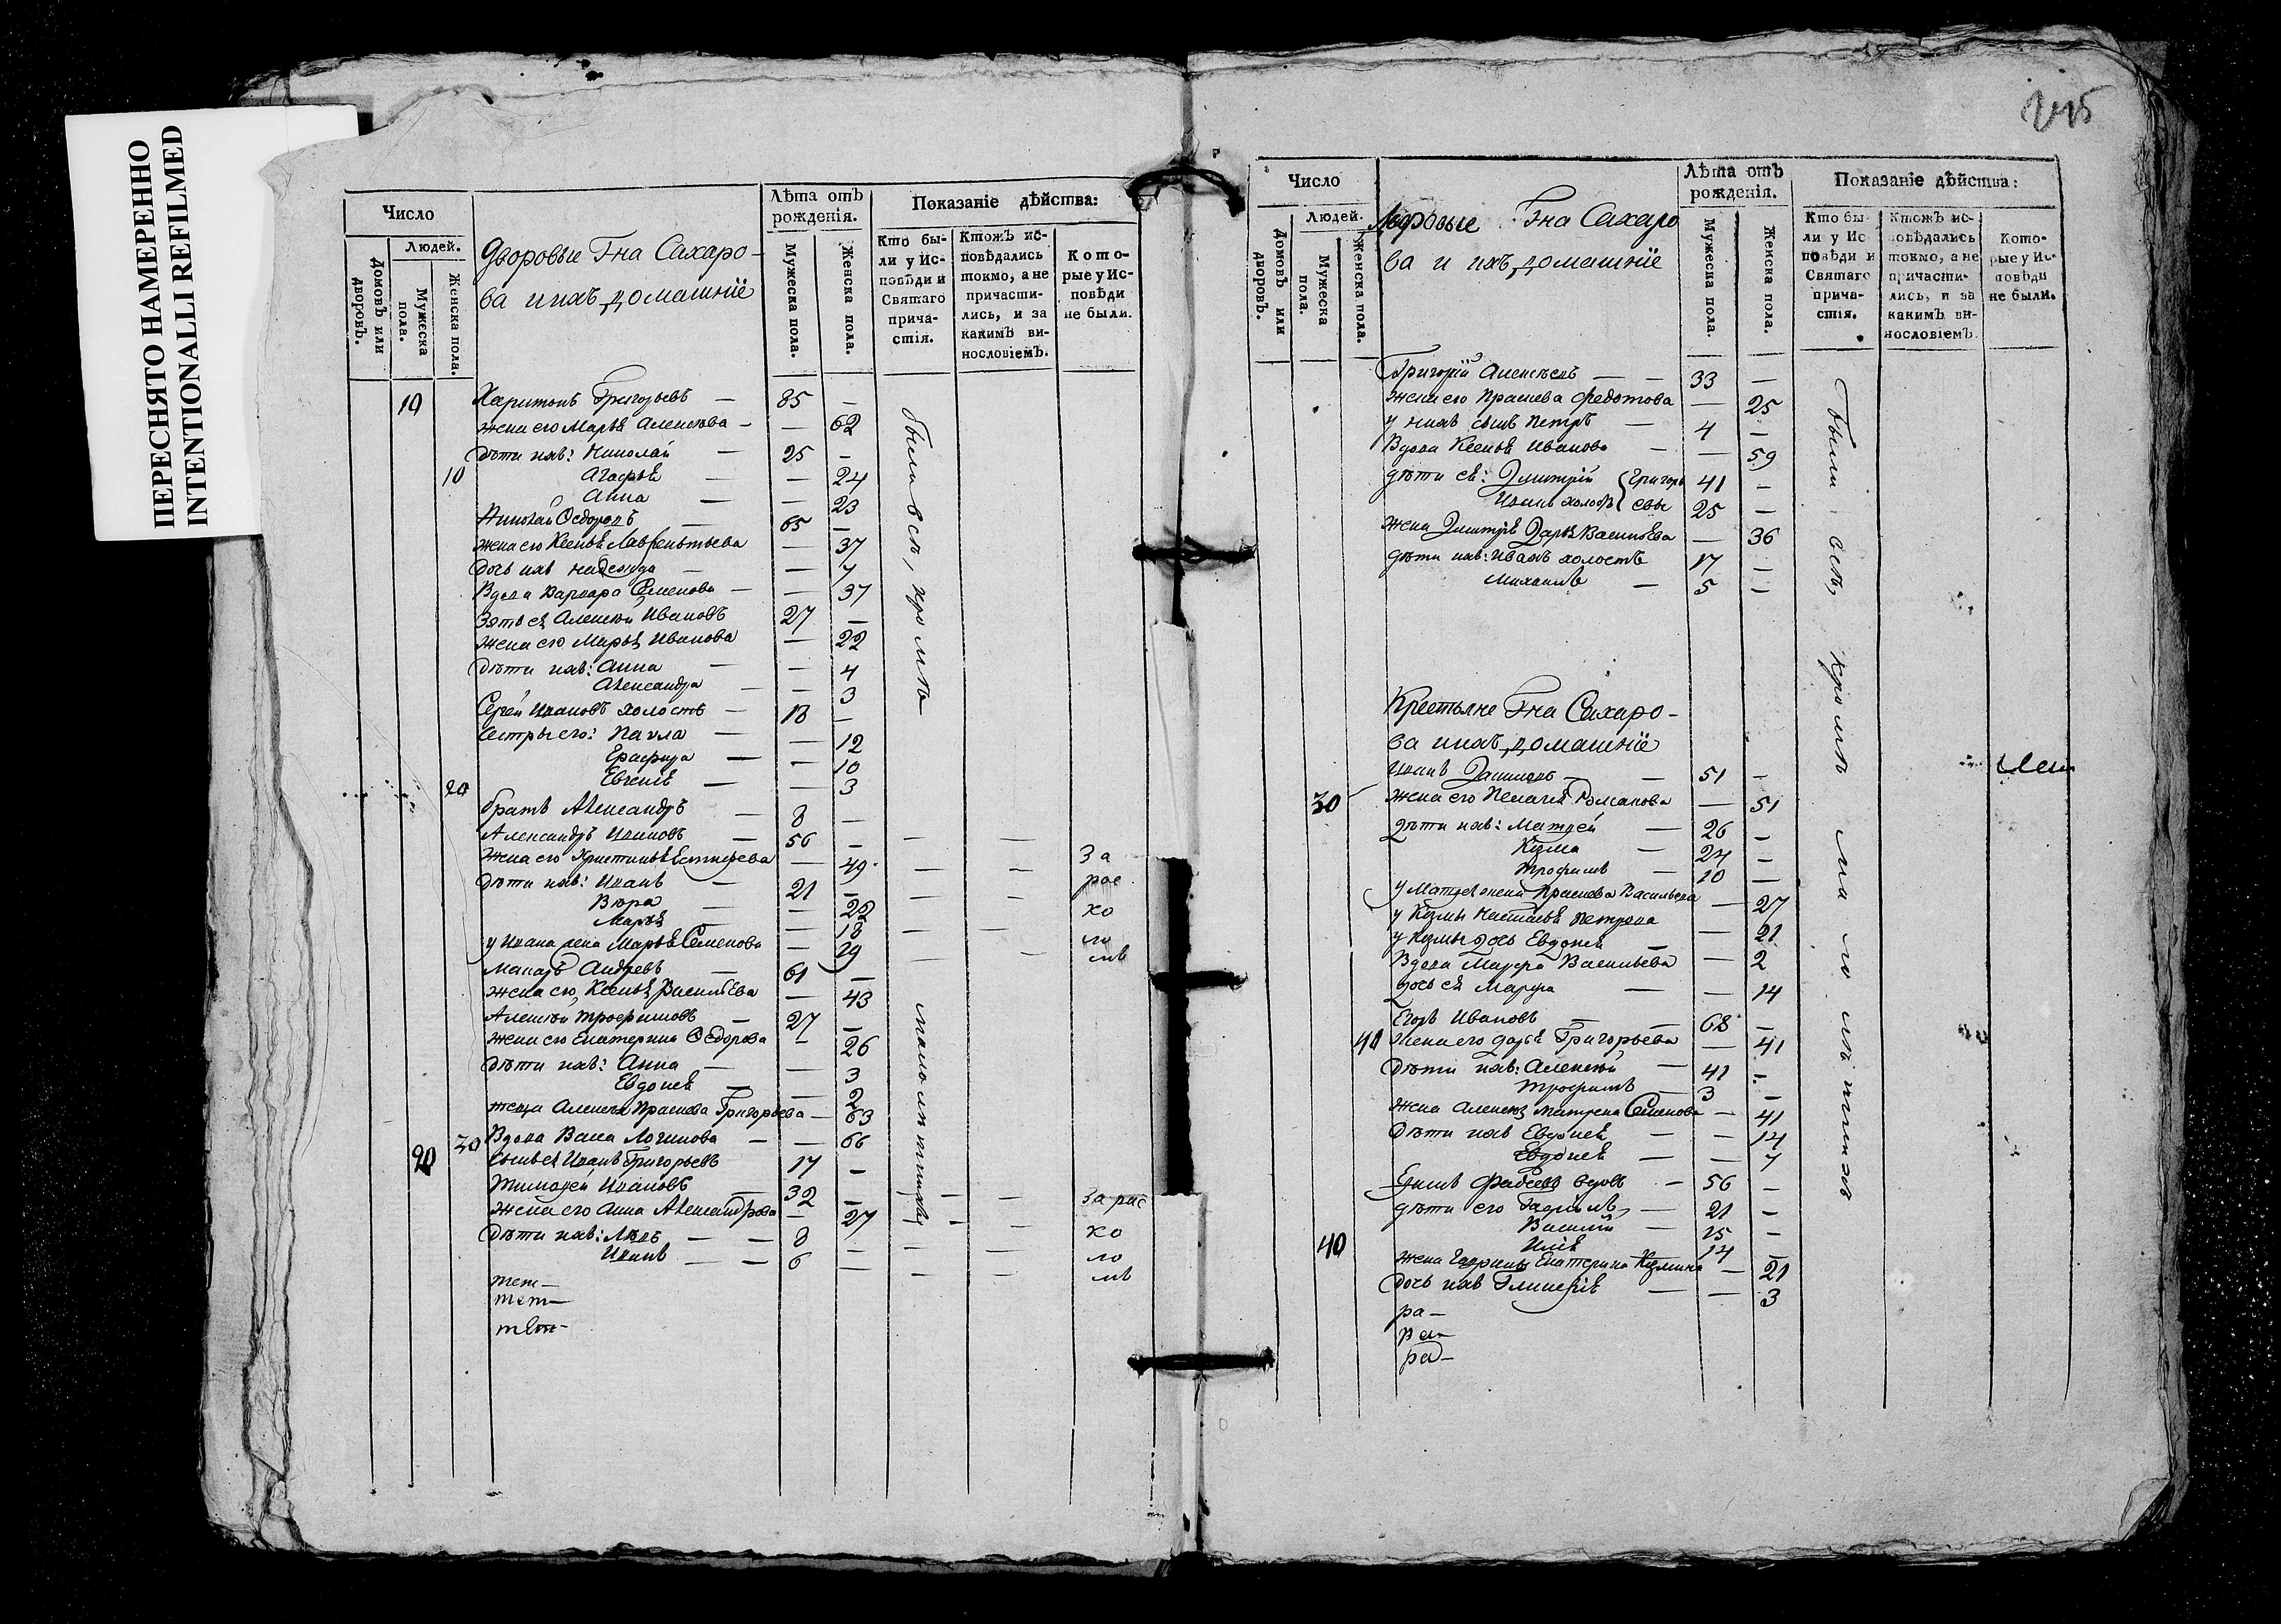 ПЕРЕСНЯТО НАМЕРЕННО
INTENTIONALLI REFILMED
Число
Людей.
Домовъ или дворовъ.
Мужеска пола.
Женска пола.
Дворовые Гна Сахаро-
ва и ихъ домашніе
Лѣта отъ рожденія.
Мужеска пола.
Женска пола.
Показаніе дѣйства:
Кто бы-
ли у Ис-
повѣди и
Святаго
прича-
стія.
Ктожъ ис-
повѣдались
токмо, а не
причасти-
лись, и за
какимъ ви-
нословіемъ.
Кото-
рые у Ис-
повѣди
не были.
10 Харитонъ Григорьевъ — 85 —
жена его Марья Алексѣева — — 62
дѣти ихъ: Николай — 25 —
10 Агафья — — 24
Анна — — 23
Николай Ѳедоровъ — 65 —
жена его Ксенья Лаврентьева — 37
дочь ихъ Надежда — — 7
Вдова Варвара Семенова — — 37
Зять ея Алексѣй Ивановъ 27 —
жена его Марья Иванова — 22
дѣти ихъ: Анна — — 4
Александра — — 3
Сергей Ивановъ холостъ — 18 —
Сестры его: Павла — — 12
— — 10
20 Евгенія — — 3
братъ Александръ — 8 —
Александръ Ивановъ — 56 — — —
жена его — 49 — — За
дѣти ихъ: Иванъ — 21 — — — рас
Вѣра — — 22 ко
Марья — — 18 — — ло
у Ивана жена Марья Семенова — 19 — — мъ
Макаръ Андреевъ — 61 —
жена его Ксенья Васильева — 43
Алексѣй Трофимовъ — 27 —
жена его Екатерина Ѳедорова — 26
дѣти ихъ: Анна — — 3
Евдокея — — 2
жена Алексѣя Прасковья Григорьева — 63
30 Вдова Васа Логинова — — 66
20 сынъ ея Иванъ Григорьевъ 17 —
Тимоѳей Ивановъ — 32 — — — За рас
жена его Анна Александрова — 27 — —
дѣти ихъ: — — 8 — — — ко
Иванъ — — 6 — — — ло
мъ
тет—
тет—
тет—
были всѣ, кромѣ
малолѣтнихъ
Число
Людей.
Домовъ или дворовъ.
Мужеска пола.
Женска пола.
Дворовые Гна Сахаро
ва и ихъ домашніе
Лѣта отъ рожденія.
Мужеска пола.
Женска пола.
Показаніе дѣйства:
Кто бы-
ли у Ис-
повѣди и
Святаго
прича-
стія.
Ктожъ ис-
повѣдались
токмо, а не
причасти-
лись, и за
какимъ ви-
нословіемъ.
Кото-
рые у Ис-
повѣди
не были.
Григорій Алексѣевъ — — 33 —
жена его Прасковья Федотова — 25
у нихъ сынъ Петръ — 4 —
Вдова Ксенья Иванова — — 59
дѣти ея: Дмитрій Григорь 41 —
Иванъ холостъ евы 25 —
жена Дмитрія Дарья Васильева — 36
дѣти ихъ: Иванъ холостъ 17 —
Михаилъ — 5 —
Крестьяне Гна Сахаро-
ва и ихъ домашніе
Иванъ Даниловъ — — 51 —
30 жена его Пелагея Романова — 51
дѣти ихъ: Матвей — 26 —
Козма — 24 —
Трофимъ — 10 —
у Матвея жена Прасковья Васильева — 27
у Козмы Настасья Петрова — 21
у Козмы дочь Евдокея — — 2
Вдова Марфа Васильева
дочь ея Марфа — — 14
Егоръ Ивановъ — — 68 —
40 жена его Дарья Григорьева — 41
дѣти ихъ: Алексѣй — 41 —
Трофимъ — 3 —
жена Алексѣя Матрена Семенова — 41
дѣти ихъ Евдокея — — 14
Евдокея — — 7
Фадеевъ вдовъ — 56 —
дѣти его Гаврилъ — 21 —
Василій — 15 —
40 Илія 14 —
жена Гаврилы Екатерина Козмина — 21
дочь ихъ Гликерія — — 3
ра—
ра—
ра—
были всѣ, кромѣ малолѣтнихъ